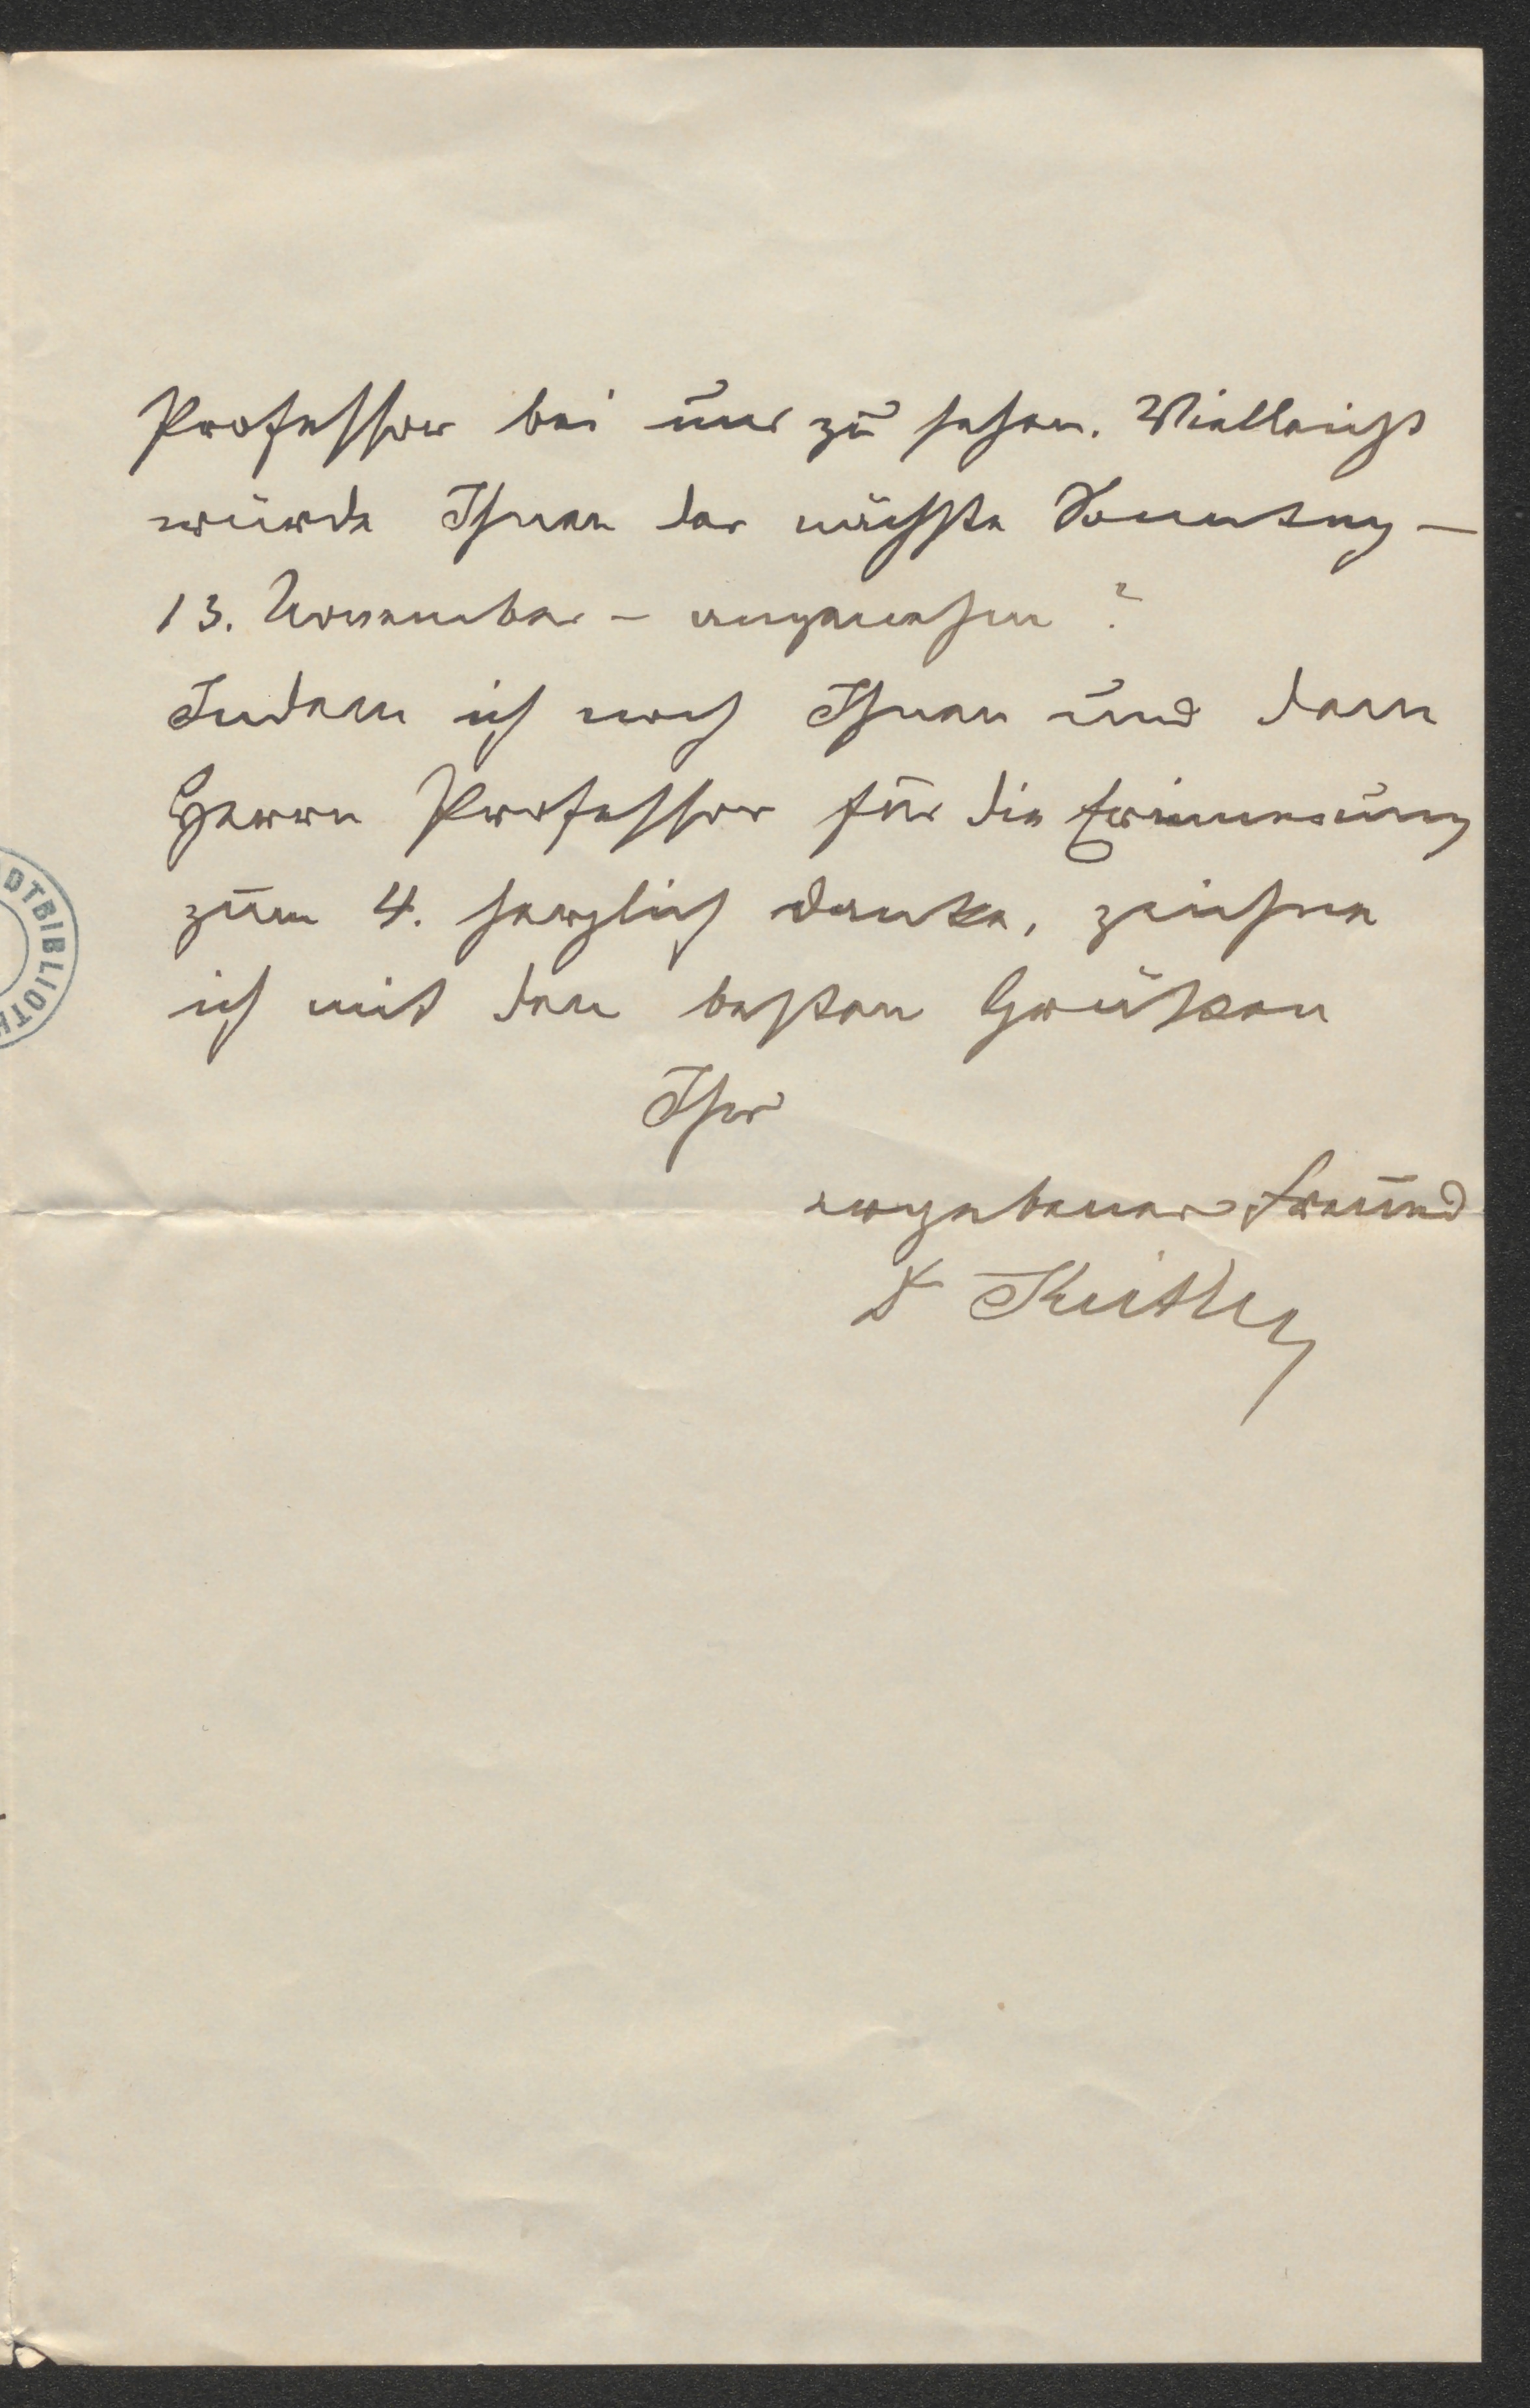 Professor bei uns zu sehen. Vielleicht
würde Ihnen der nächste Sonntag –
13. November – angenehm?
Indem ich noch Ihnen und dem
Herrn Professor für die Erinnerung
zum 4. herzlich danke, zeichne
ich mit den besten Grüßen
Ihr
ergebener Freund
Dr
DTBIBLIOTH